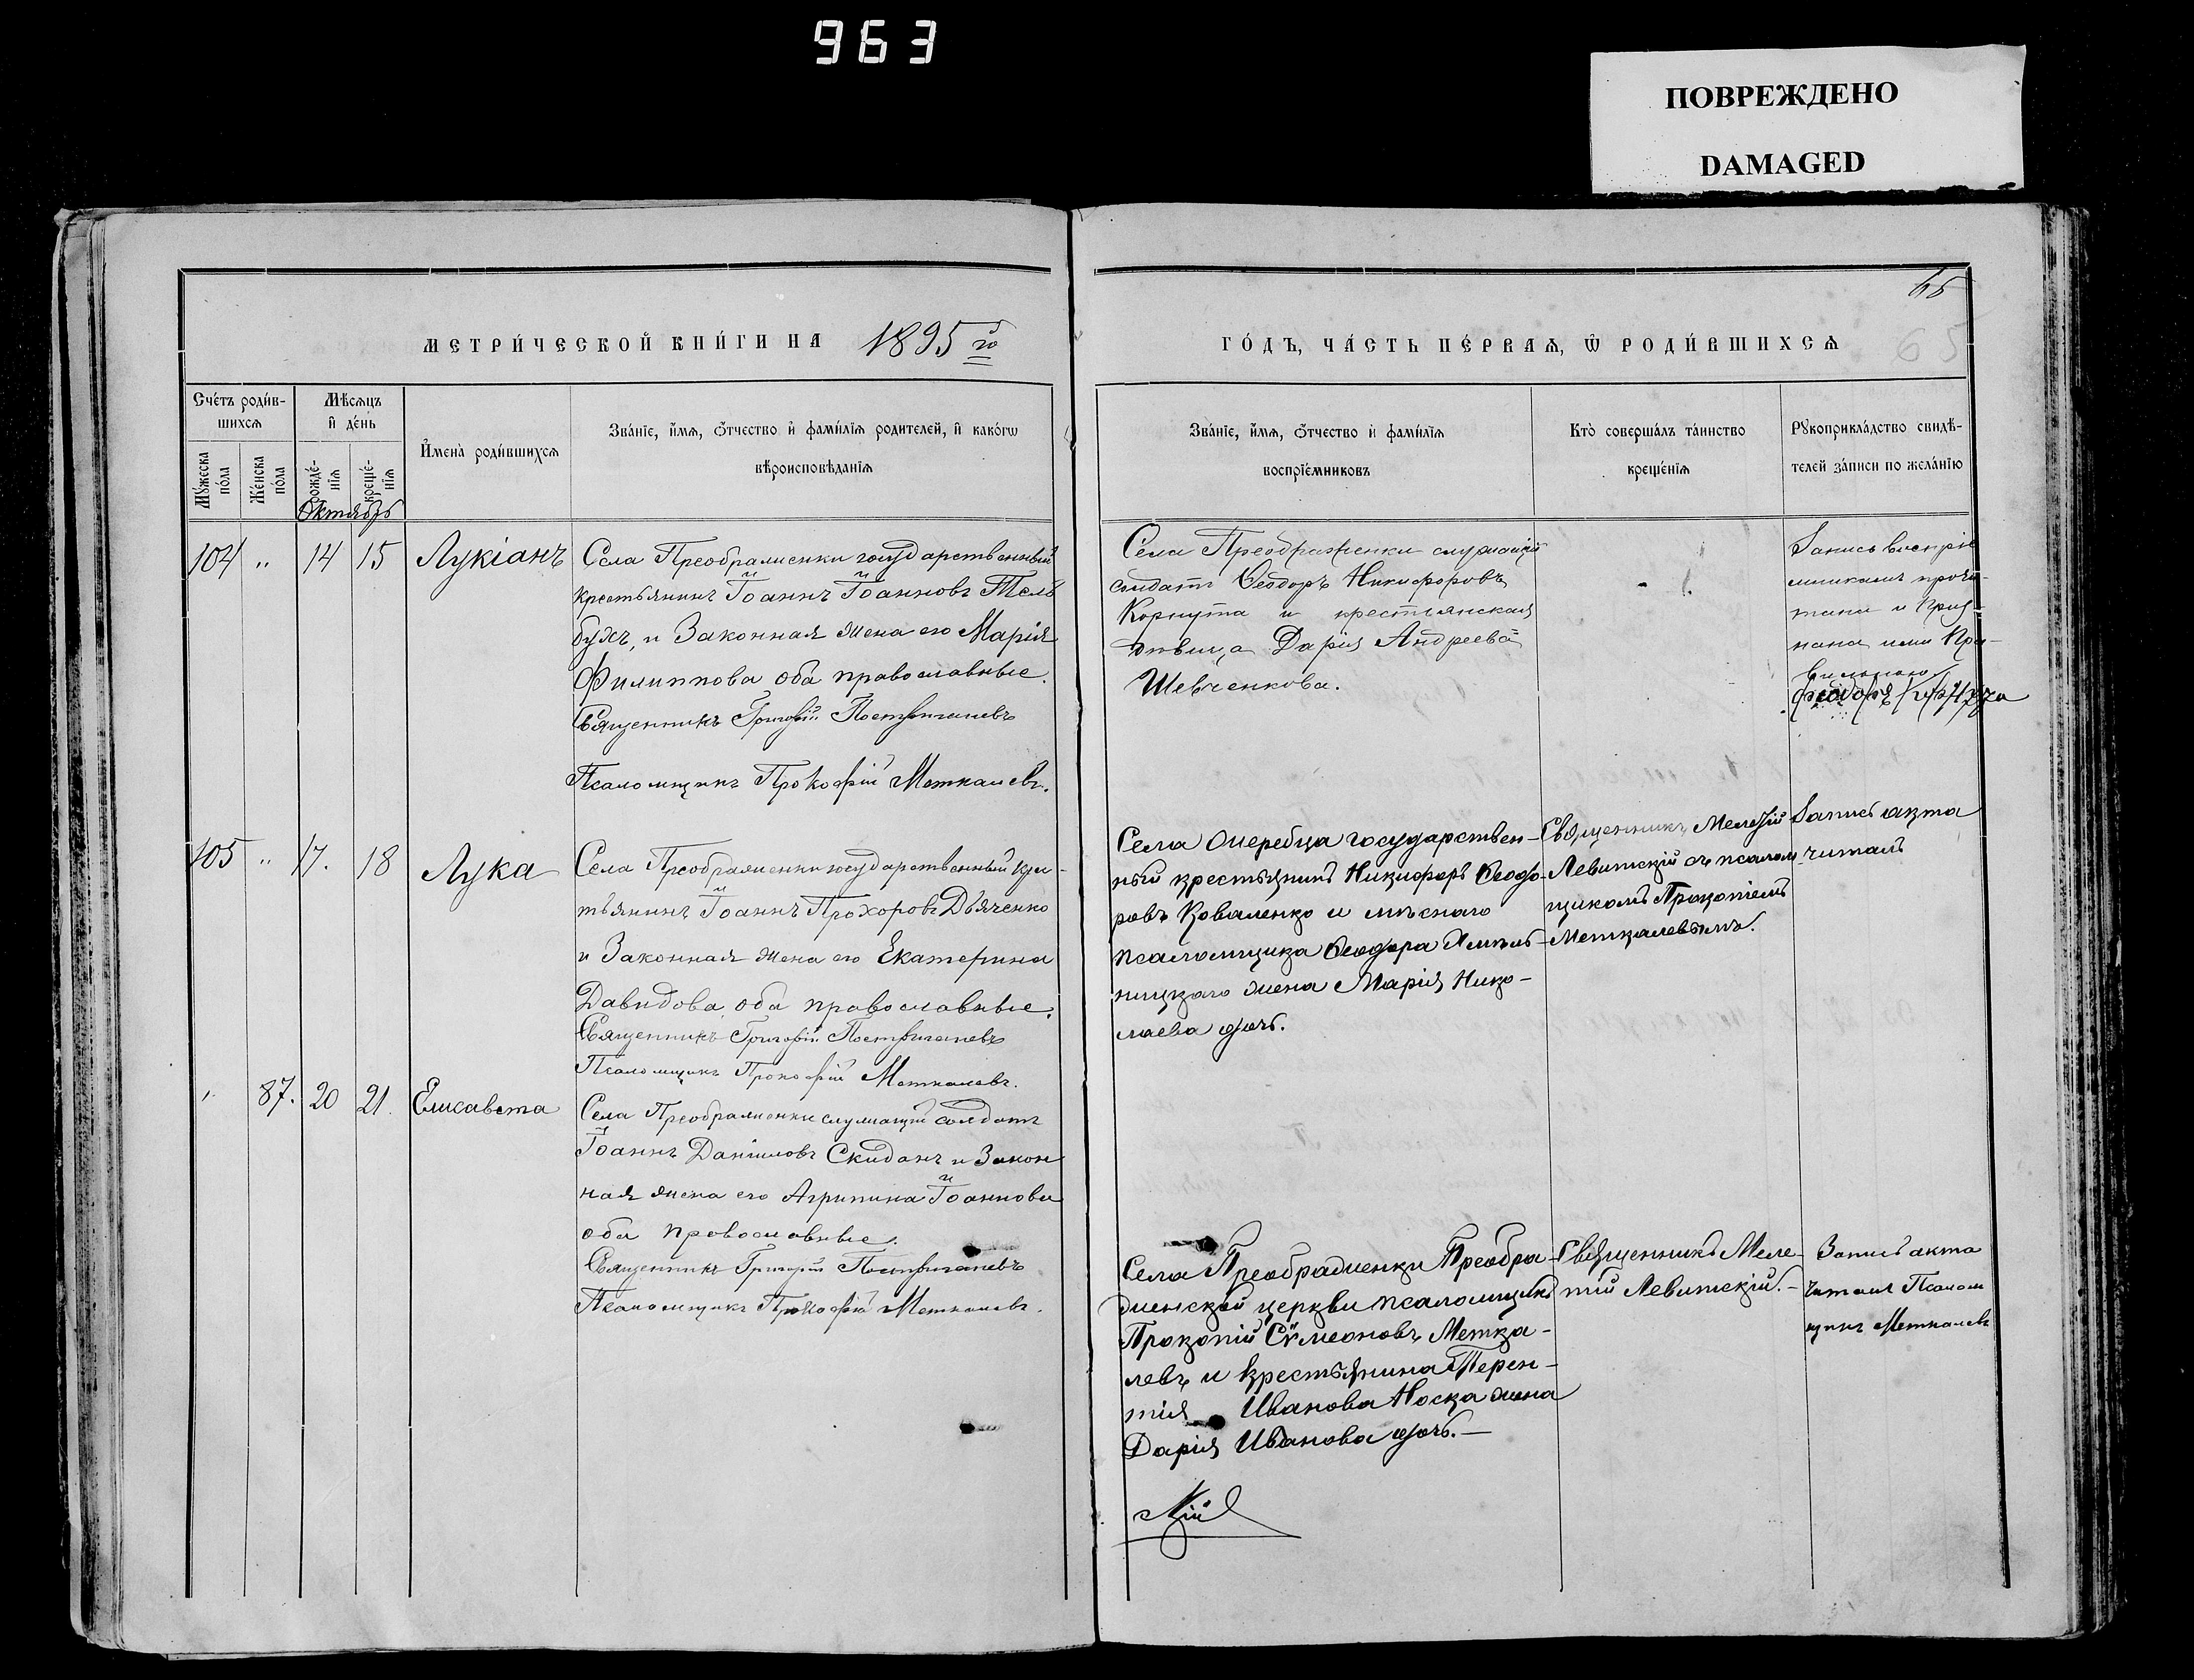 963
ПОВРЕЖДЕНО
DAMAGED
65
65
МЕТРИ́ЧЕСКОЙ КНИ́ГИ НА 1895 го
ГО́ДЪ, ЧА́СТЬ ПЕ́РВАѦ, Ѡ РОДИ́ВШИХСѦ
Сче́тъ роди́в-
шихсѧ
Мꙋ́жеска по́ла
Же́нска по́ла
Мѣ́сѧцъ
и҆ де́нь
рожде́-нїѧ
креще́-нїѧ
Октябрь
И҆мена̀ роди́вшихсѧ
Зва́нїе, и҆́мѧ, ѻ҆́тчество и҆ фами́лїѧ роди́телей, и҆ како́гѡ
вѣроисповѣ́данїѧ
Зва́нїе, и҆́мѧ, ѻ҆́тчество и҆ фами́лїѧ
воспрїе́мниковъ
Кто̀ соверша́лъ та́инство
креще́нїѧ
Рꙋкоприкла́дство свидѣ́-
телей за́писи по жела́нїю
104 " 14 15 Лукіанъ
Села Преображенки государственный
крестьянинъ Іоаннъ Іоанновъ Тель
бухъ, и Законная жена его Марія
Филиппова оба православные.
Священникъ Григорій
Псаломщикъ Прокофій Меткалевъ.
Села Преображенки служащій
солдатъ Ѳеодоръ Никифоровъ
Корнута и крестьянская
дѣвица Дарія Андреева
Шевченкова.
Запись воспріе
мникамъ прочи-
тана и приз-
нана ими Пра-
вильною
105 " 17. 18 Лука
Села Преображенки государственный крес-
тьянинъ Іоаннъ Прохоровъ Дьяченко
и Законная жена его Екатерина
Давидова оба православные.
Священникъ Григорій
Псаломщикъ Прокофій Меткалевъ.
Села Жеребца государствен-
ный крестьянинъ Никифоръ Ѳеодо-
ровъ Коваленко и мѣснаго
псаломщика Ѳеодора Ямпль-
ницкаго жена Марія Нико-
лаева дочь.
Священникъ Мелетій
Левитскій съ псалом-
щикомъ Прокопіемъ
Меткалевымъ.
Запись акта
читалъ
" 87. 20 21. Елисавета
Села Преображенки служащій солдатъ
Іоаннъ Даніиловъ Скиданъ и Закон
ная жена его Агрипина Іоаннова
оба православные.
Священникъ Григорій
Псаломщикъ Прокофій Меткалевъ.
Села Преображенки Преобра-
женской церкви псаломщикъ
Прокопій Сѵмеоновъ Метка-
левъ и крестьянина Терен-
тія Иванова Носка жена
Дарія Иванова дочь.—
Священникъ Меле-
тій Левитскій.—
Запись акта
читалъ Псалом
щикъ Меткалевъ